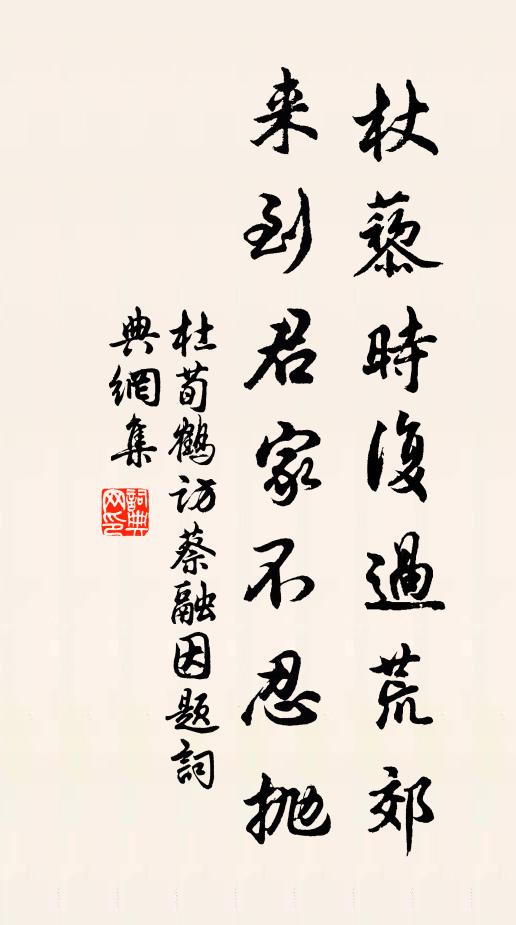 杖藜時復過荒郊
来到君家不忍抛
杜荀鶴訪蔡融因題詞
典網集
詞典网印